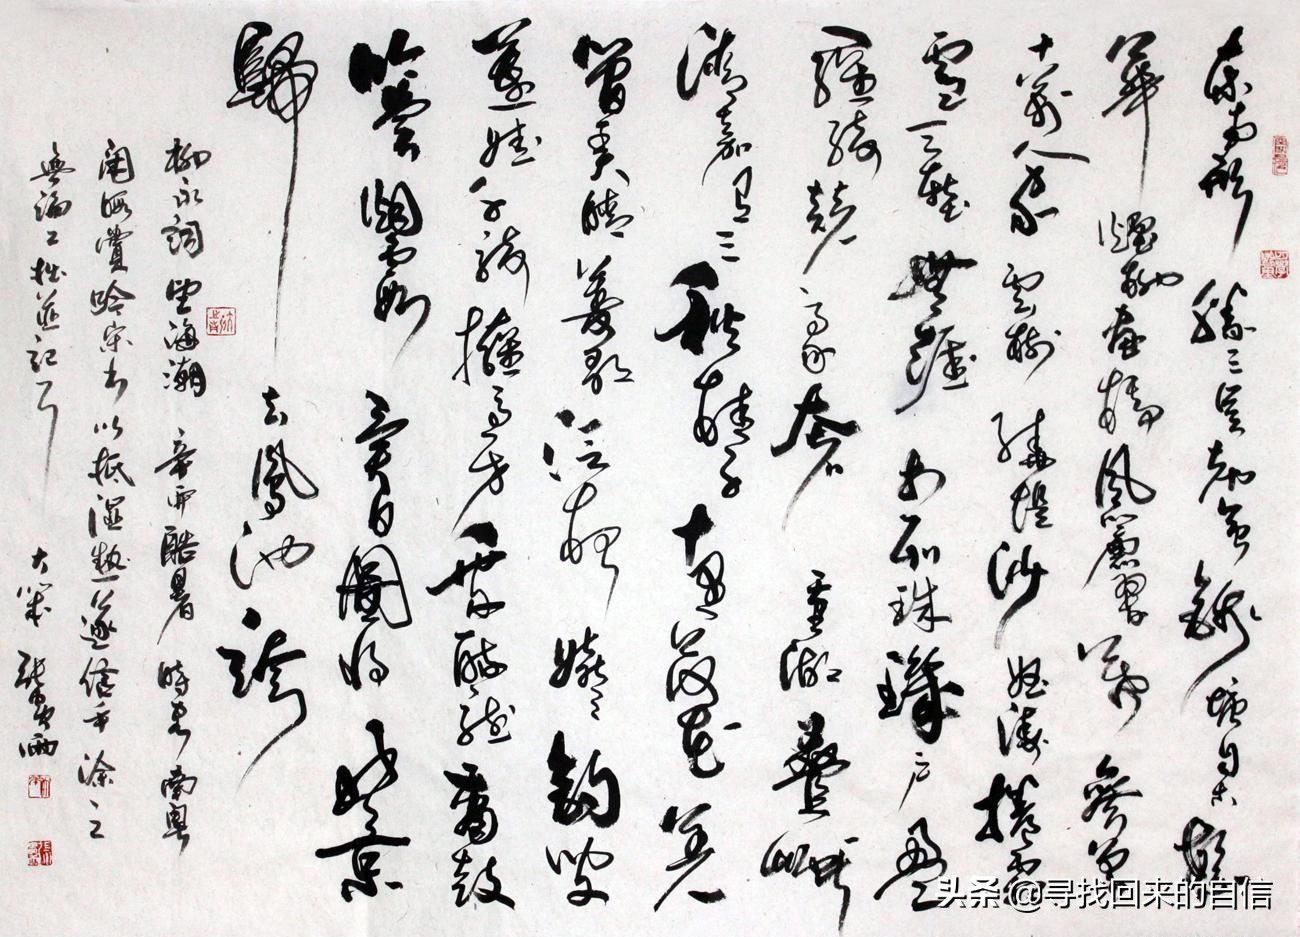 東南形勝三吳都會錢塘自古繁
華煙柳畫橋風簾翠幕參差
十萬人家雲樹繞堤沙怒濤捲霜
雪天塹無涯市列珠璣戶盈
羅綺競豪奢重湖疊巘
清嘉有三秋桂子十里荷花羌
管弄晴菱歌泛夜嬉嬉釣叟
蓮娃千騎擁高牙乘醉聽簫鼓
吟賞煙霞異日圖將好景
歸去鳳池誇
柳永詞望海潮 酷暑時於南粵
閑暇賞吟宋 以抵濕熱遂信手塗之
無論工拙 記
头条 @寻找回来的自信